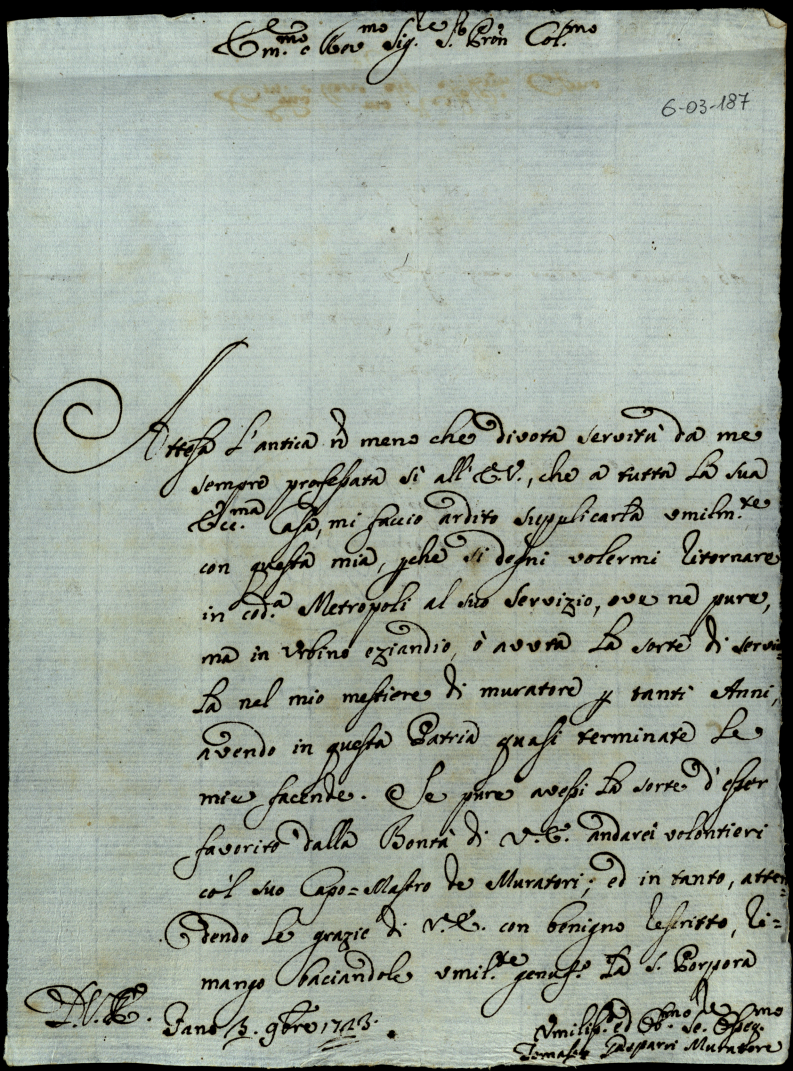 Em.mo e Rev.mo Sig.re S.r Pron Col.mo
6-03-187
Attesa l'antica ñ meno che divota servitù da me
sempre professata sì all' E.V., che a tutta la sua
Ecc.ma Casa, mi faccio ardito supplicarla umilm.te
con questa mia, pche si degni volermi ritornare
in cod.a Metropoli al suo servizio, ove ne pure,
ma in Urbino eziandio, ò avuta la sorte di servir
la nel mio mestiere di muratore p tanti Anni,
avendo in questa Patria quasi terminate le
mie facende. Se pure avessi la sorte d'esser
favorito dalla Bontà di V.E. andarei volontieri
co'l suo Capo=Mastro de Muratori; ed in tanto, atten=
dendo le grazie di V.E. con benigno rescritto, ri=
mango baciandole umil.te genuf.o la S. Porpora
D.V.E.
Fano 3. 9bre 1723.
Umiliss.o ed Ob.mo Se.re Osseq.mo
Tomasso Gasparri Muratore